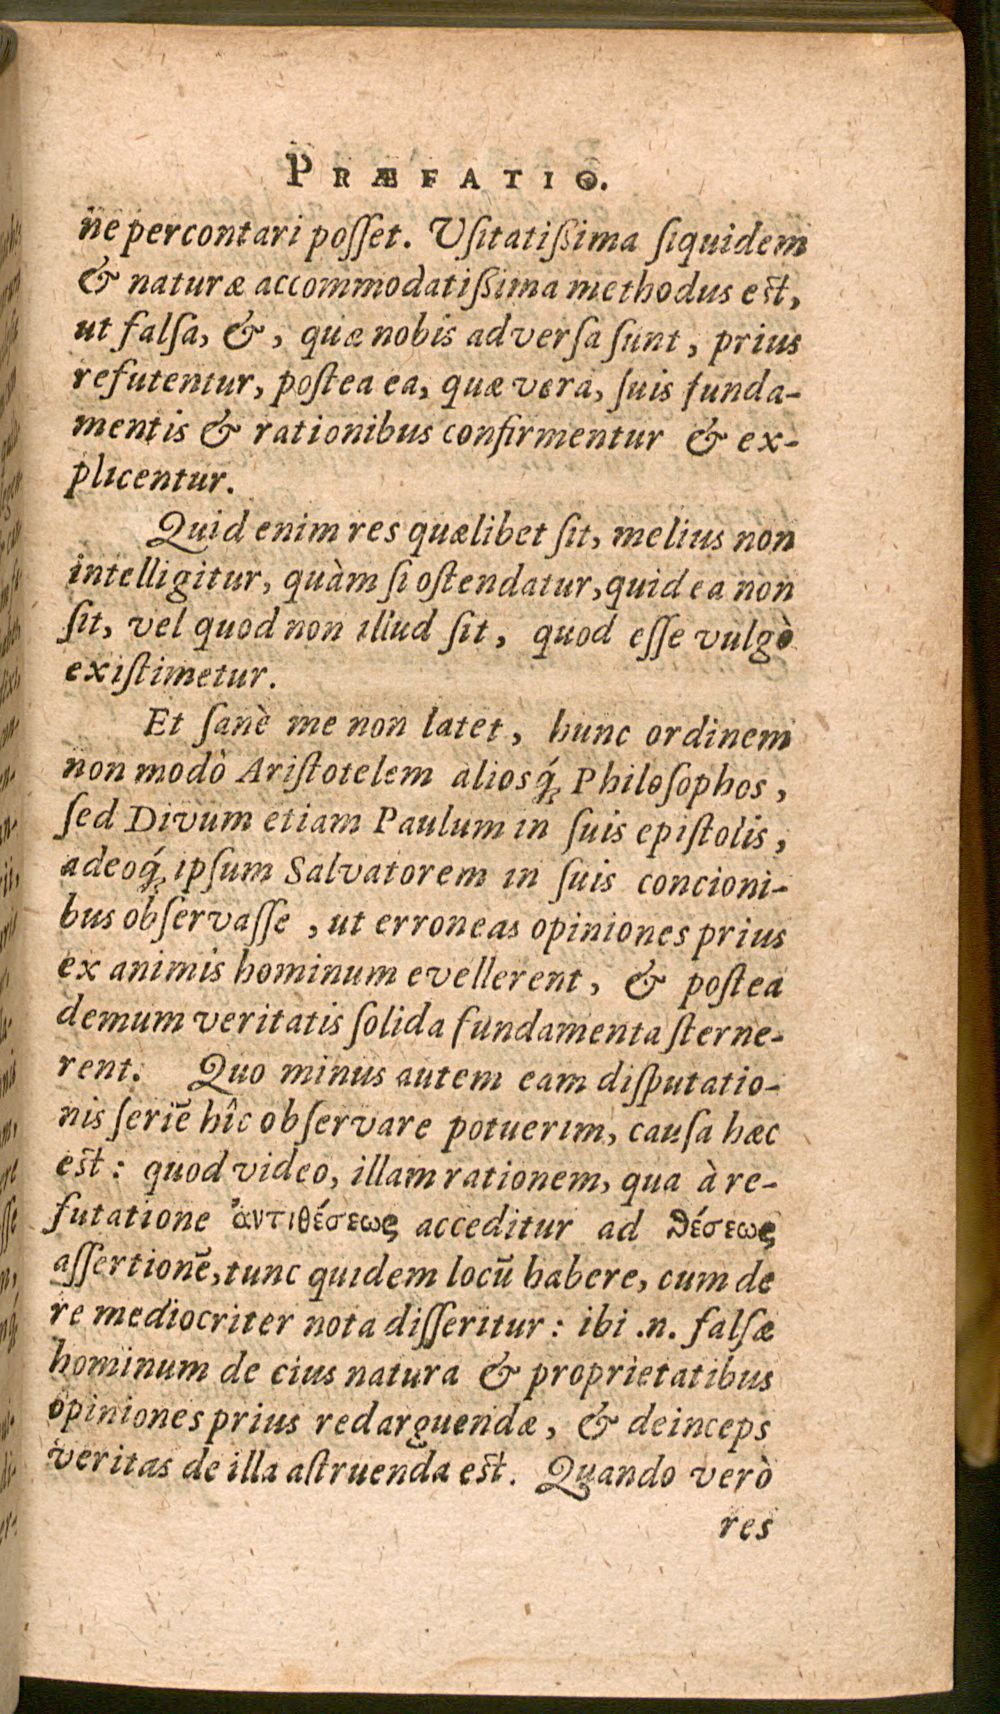 PRÆFATIO.
ne percontari poſſet. Uſitatißima ſiquidem
& naturæ accommodatißima methodus est,
ut falſa, &, quæ nobis adverſa ſunt, prius
refutentur, poſtea ea, quæ vera, ſuis funda-
mentis & rationibus confirmentur & ex-
plicentur.
Quid enim res quælibet ſit, melius non
intelligitur, quàm ſi oſtendatur, quid ea non
ſit, vel quod non illud ſit, quod eſſe vulgò
exiſtimetur.
Et ſanè me non latet, hunc ordinem
non modò Ariſtotelem aliosq́; Philoſophos,
ſed Divum etiam Paulum in ſuis epiſtolis,
adeoq́; ipſum Salvatorem in ſuis concioni-
bus obſervaſſe, ut erroneas opiniones prius
ex animis hominum evellerent, & poſtea
demum veritatis ſolida fundamenta ſterne-
rent. Quo minus autem eam diſputatio-
nis ſeriē hîc obſervare potuerim, cauſa hæc
est: quod video, illam rationem, qua à re-
futatione ἀντιθέσεως acceditur ad θέσεως
aſſertionē, tunc quidem locū habere, cum de
re mediocriter nota diſſeritur: ibi .n. falſæ
hominum de eius natura & proprietatibus
opiniones prius redarguendæ, & deinceps
veritas de illa aſtruenda est. Quando verò
res